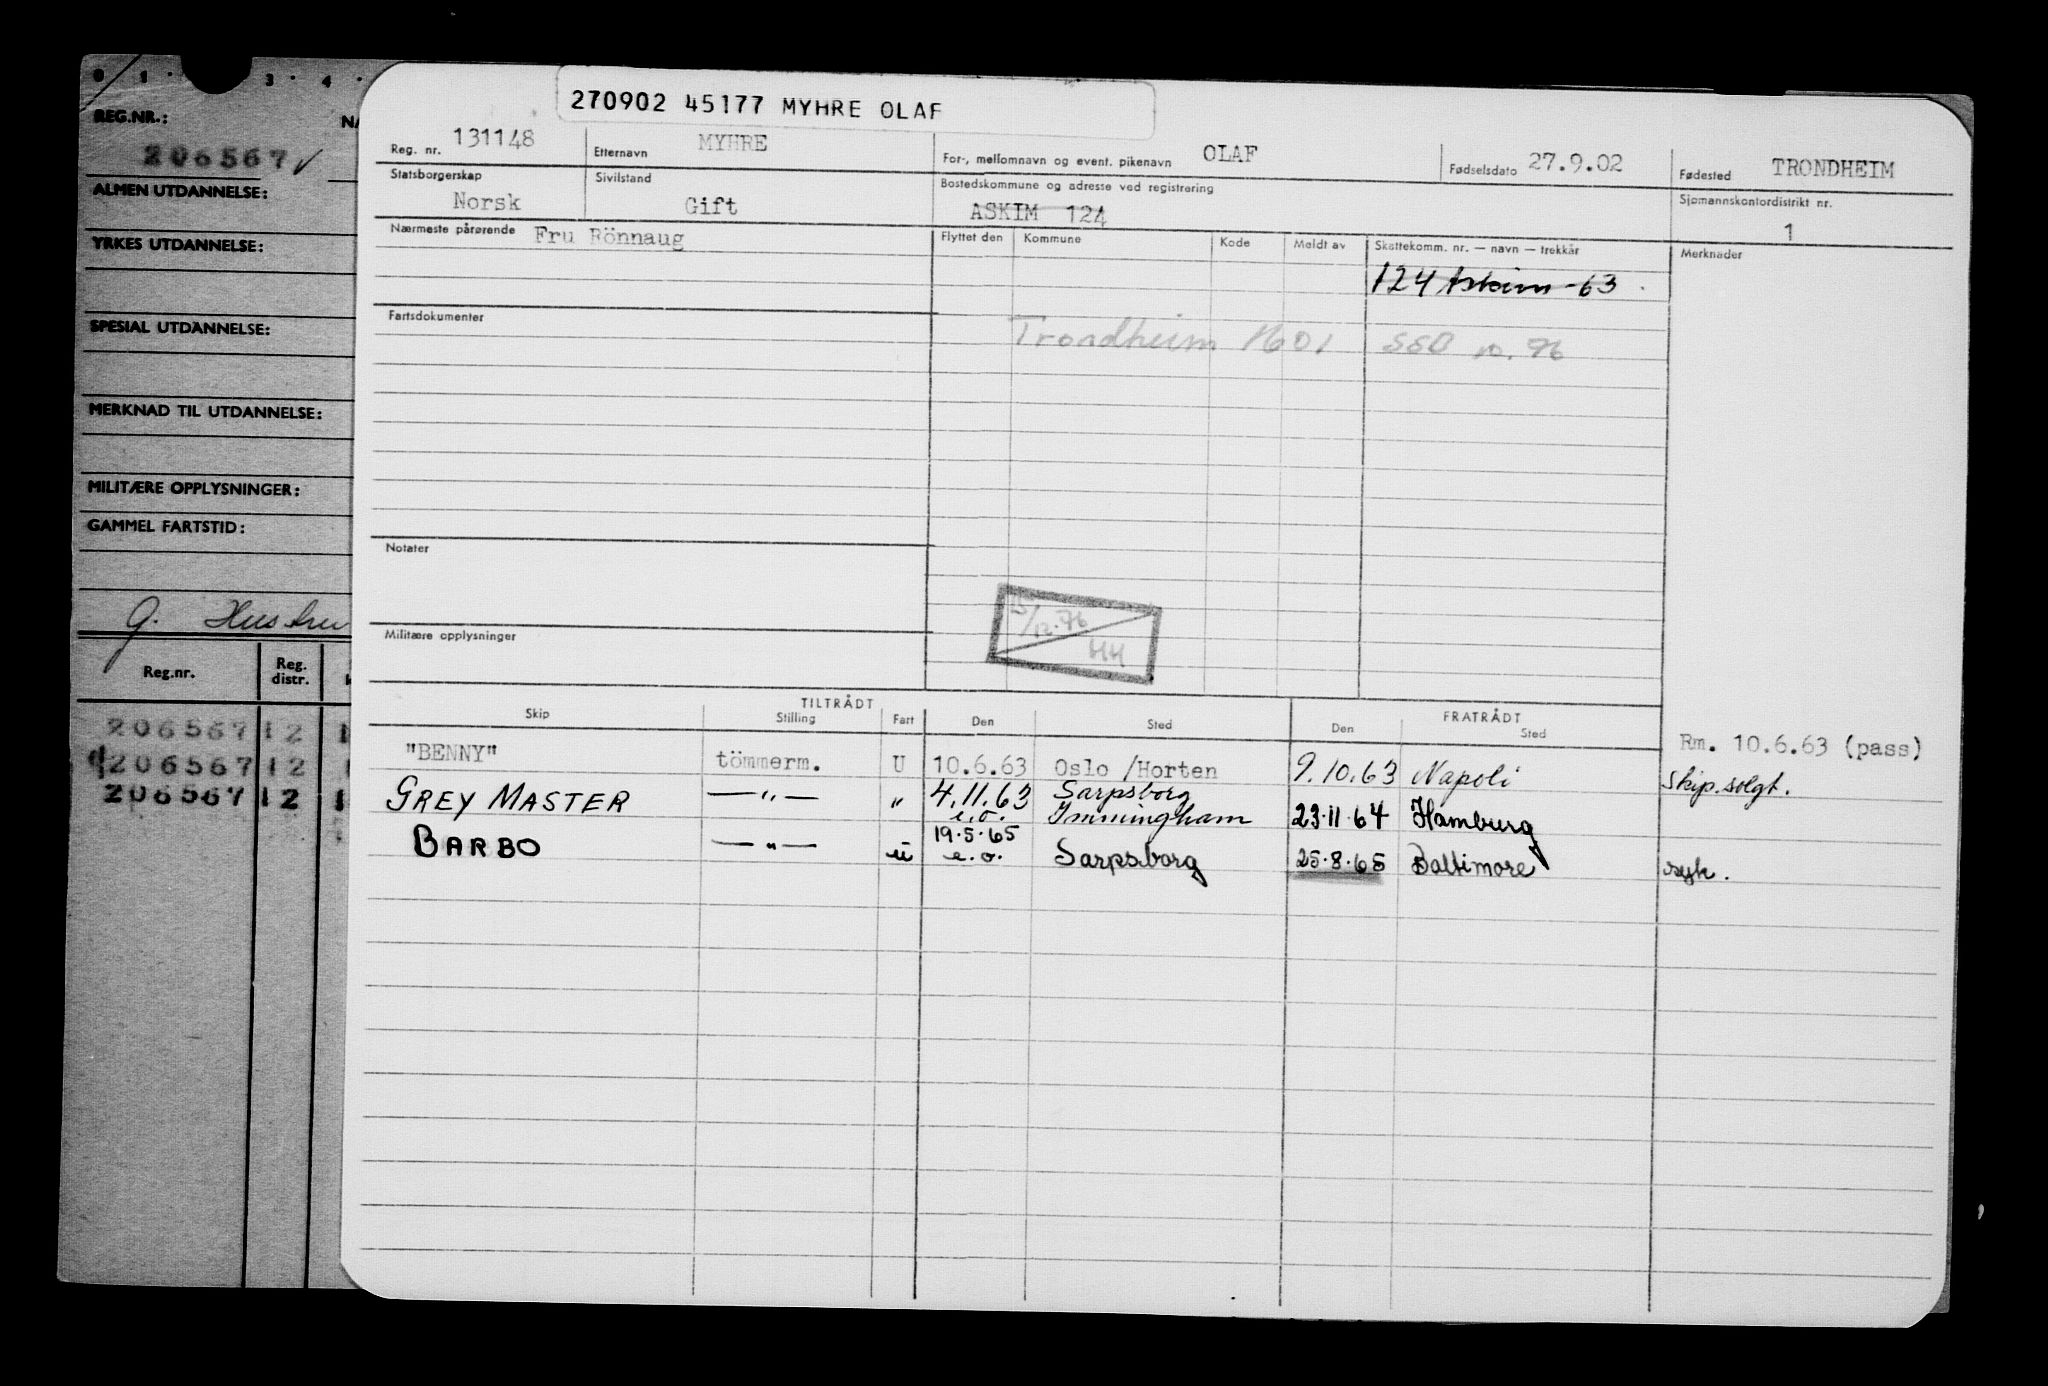 0 1 · 3 · 4 ·
REG.NR.:
206567 ✓
ALMEN UTDANNELSE:
YRKES UTDANNELSE:
SPESIAL UTDANNELSE:
MERKNAD TIL UTDANNELSE:
MILITÆRE OPPLYSNINGER:
GAMMEL FARTSTID:
G.
Reg.nr. Reg. distr.
206567 12 1
206567 12 1
206567 12 1
270902 45177 MYHRE OLAF
Reg. nr. 131148 Etternavn MYHRE For-, mellomnavn og event. pikenavn OLAF Fødselsdato 27.9.02 Fødested TRONDHEIM
Statsborgerskap Norsk Sivilstand Gift Bostedskommune og adresse ved registrering ASKIM 124 Sjømannskontordistrikt nr. 1
Nærmeste pårørende Fru Rönnaug Flyttet den Kommune Kode Meldt av Skattekomm. nr. — navn — trekkår Merknader
124 Askim -63
Fartsdokumenter
Trondheim 1601 SSB 10.76
Notater
15/12.76
HH
Militære opplysninger
TILTRÅDT FRATRÅDT
Skip Stilling Fart Den Sted Den Sted
Rm. 10.6.63 (pass)
"BENNY" tömmerm. U 10.6.63 Oslo /Horten 9.10.63 Napoli Skip. solgt.
GREY MASTER —"— " 4.11.63 e.o. Sarpsborg Immingham 23.11.64 Hamburg
BARBO —"— u 19.5.65 e.o. Sarpsborg 25.8.65 Baltimore syk.